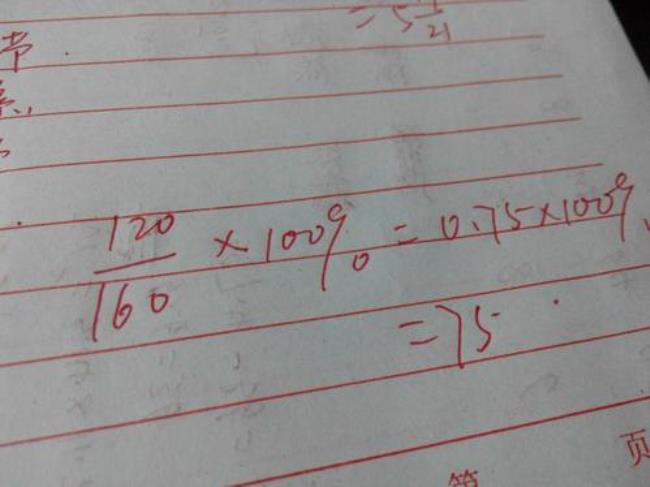 = 5 1/21
120/160 × 100% = 0.75 × 100%
= 75
第 页